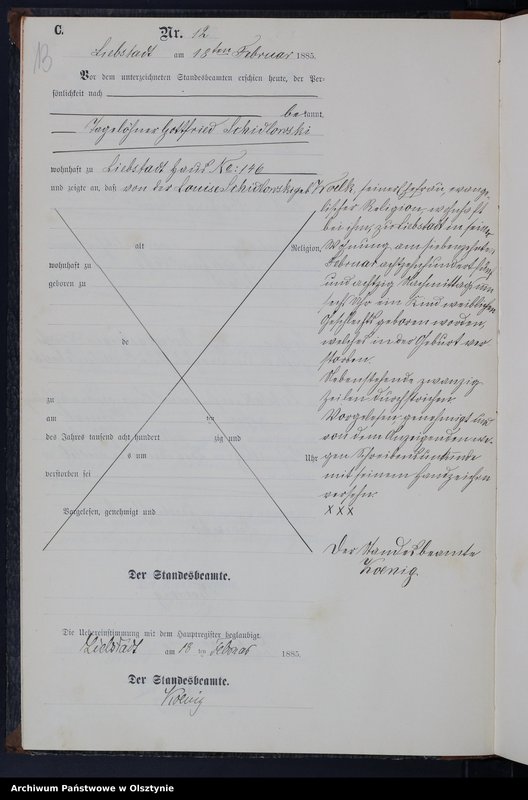 13
C.
Nr. 12
Liebstadt am 18ten Februar 1885.
Vor dem unterzeichneten Standesbeamten erschien heute, der Per-
sönlichkeit nach
be kannt,
Tagelöhner Gottfried Schidlowski
wohnhaft zu Liebstadt Haus No: 146
und zeigte an, daß von der Louise Schidlowski geb. Volk, seiner Ehefrau, evange-
lischer Religion, wohnhaft
bei ihm, zu Liebstadt in seiner
Wohnung, am siebenzehnten
Februar achtzehnhundert fünf
und achtzig Nachmittags um
sechs Uhr ein Kind weiblichen
Geschlechts geboren worden,
welches in der Geburt ver-
storben.
Nebenstehende zwanzig
Zeilen durchstrichen.
Vorgelesen, genehmigt und
von dem Anzeigenden we-
gen Schreibensunkunde
mit seinem Handzeichen
versehn.
XXX
Der Standesbeamte
Koenig.
alt Religion,
wohnhaft zu
geboren zu
de
zu
am ten
des Jahres tausend acht hundert zig und
s um Uhr
verstorben sei
Vorgelesen, genehmigt und
Der Standesbeamte.
Die Uebereinstimmung mit dem Hauptregister beglaubigt.
Liebstadt am 18 ten Februar 1885.
Der Standesbeamte.
Koenig
Archiwum Państwowe w Olsztynie